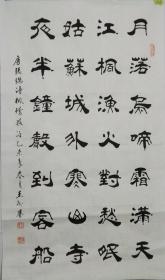 月落烏啼霜滿天
江楓漁火對愁眠
姑蘇城外寒山寺
夜半鐘聲到客船
唐張繼詩楓橋夜泊乙未年春月王